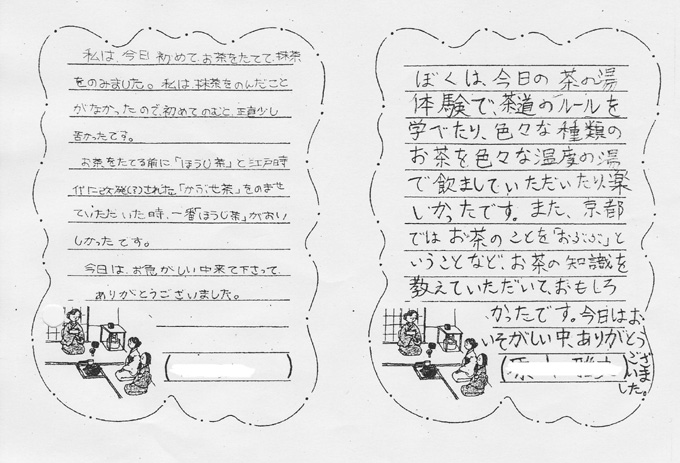 私は、今日初めてお茶をたてて、抹茶
をのみました。私は、抹茶をのんだこと
がなかったので、初めてのむと、正直少し
苦かったです。
お茶をたてる前に「ほうじ茶」と江戸時
代に改発(?)された「かぶせ茶」をのませ
ていただいた時、一番「ほうじ茶」がおい
しかったです。
今日は、お急がしい中来て下さって、
ありがとうございました。
ぼくは、今日の茶の湯
体験で、茶道のルールを
学べたり、色々な種類の
お茶を色々な温度の湯
で飲ましていただいたり、楽
しかったです。また、京都
ではお茶のことを「おぶぶ」と
いうことなど、お茶の知識を
教えていただいて、おもしろ
かったです。今日はお
いそがしい中、ありがとう
ございました。